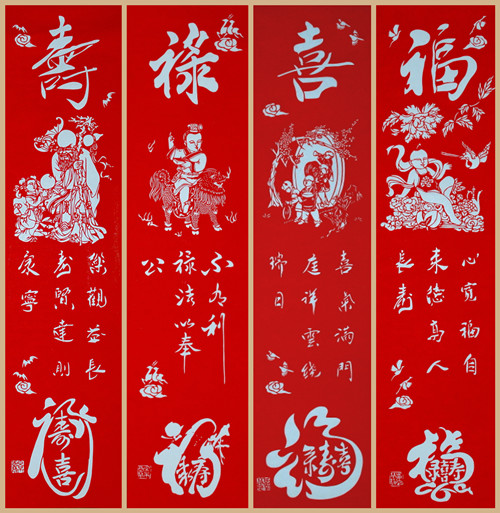 福
心寬福自
来德高人
長壽
喜
喜氣滿門
庭祥雲繞
瑞日
禄
不为利
禄法以奉
公
壽
樂觀益長
壽賢達則
康寧